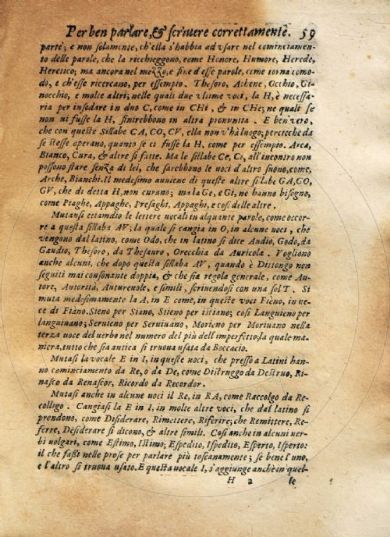 Per ben parlare, & scriuere correttamente. 59
parte; e non solamente, ch'ella s'habbia ad vsare nel cominciamento
delle parole, che la richieggono, come Honore, Humore, Herede,
Heretico, ma ancora nel mezzo, e fine d'esse parole, come torna comodo,
e ch'esse ricercano, per essempio. Thesoro, Athene, Occhio, Ginocchio,
e molte altri; nelle quali due vltime voci, la H, è necessaria
per insodare in dno C, come in CHi, & in CHe; ne quali se
non vi fusse la H, finirebbono in altra pronuntia. E ben vero,
che con queste Sillabe CA, CO, CV, ella non v'hà luogo; percioche da
se stesse operano, quanto se vi fusse la H, come per essempio. Arca,
Bianco, Cura, & altre sì fatte. Ma le sillabe Ce, Ci, all'encontro non
possono stare senza di lei, che sarebbono le voci d'altro suono, come,
Arche, Bianchi. Il medesimo auuiene di queste altre sillabe GA, CO,
GV, che di detta H, non curano; ma la Ge, e Gi, ne hanno bisogno,
come Piaghe, Appaghe, Presaghi, Appaghi, e così delle altre.
Mutansi etiamdio le lettere vocali in alquante parole, come occorre
a questa sillaba AV; la quale si cangia in O, in alcune voci, che
vengono dal latino, come Odo, che in latino si dice Audio, Godo, da
Gaudio, Thesoro, da Thesauro, Orecchia da Auricola. Vogliono
anche alcuni, che dopo questa sillaba AV, quando è Dittongo non
seguiti mai consonante doppia, & che sia regola generale, come Autore,
Autorità, Auturenole, e simili, scriuendosi con una sol T. Si
muta medesimamente la A, in E come, in queste voce Fieno, in vece
di Fiano. Sieno per Siano, Stieno per stiano; così Languieno per
languiuano; Seruieno per Seruiuano, Morieno per Moriuano nella
terza voce del verbo nel numero del più dell'imperfetto, la qual maniera,
tutto che sia antica si truoua usata da Boccacio.
Mutasi la vocale E in I, in queste noci, che presso a Latini hanno
cominciamento da Re, o da De, come Distruggo da Destruo, Rinasco
da Renascor, Ricordo da Recordor.
Mutasi anche in alcune voci il Re, in RA, come Raccolgo da Recolligo.
Cangiasi la E in I, in molte altre voci, che dal latino si
prendono, come Disiderare, Rimettere, Riferire; che Remittere, Referre,
Desiderare si dicono, & altre simili. Così anche in alcuni verbi
volgari, come Estimo, Istimo; Espedito, Ispedito, Esperto, Isperto:
il che fassi nelle prose per parlare più toscanamente; se bene l'uno,
e l'altro si truoua usato. E questa vocale I, s'aggiunge anche in quel-
H 2 le